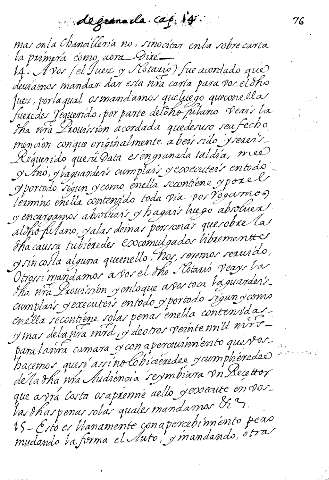 de granada cap. 14. 76
mas en la Chançilleria no, sino citar en la sobre carta
la primera como, aora Dire
14. A vos (el Juez, y Notario) fue acordado que
deviamos mandar dar esta nra carta para vos el dho
Juez, por la qual os mandamos que luego que con ella
fueredes requerido, por parte del dho fulano veais la
dha nra Provission acordada que de suso se a fecho
mencion con que originalmente abeis sido, y sereis
Requerido que su Data es en granada tal dia, mes
y Año, y la guardeis cumplais y executeis en todo
y por todo segun y como en ella se contiene y por el
termino en ella contenido todavia vos rogamos
y encargamos absolvais y hagais luego absolver
al dho fulano, y a las demas personas que sobre la
dha caussa tubieredes excomulgados libremente
y sin costa alguna que en ello nos, seremos servido.
Otrossi mandamos a vos el dho Notario veais la
dha nra Provission, y en lo que a vos toca la guardeis
cumplais y executeis en todo y por todo segun y como
en ella se contiene so las penas en ella contenidas
y mas de la nra mrd, y de otros veinte mill mrs
para la nra camara, y con apercevimiento que vos
hacemos que si assi no lo hicieredes y cumplieredes
de la dha nra Audiencia se ymbiara un Receptor
que a vra costa os apremie a ello y execute en vos
las dhas penas so las quales mandamos &ª
15. Esto es llanamente con apercebimiento pero
mudando la forma el Auto, y mandando, otra